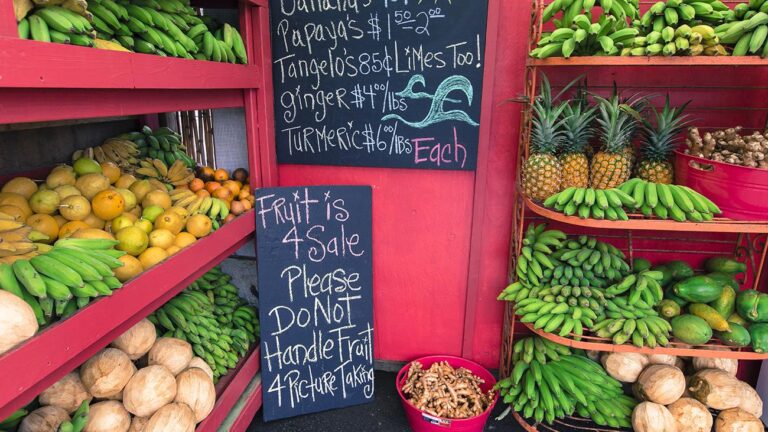 Banana's
Papaya's $1 50 - 2 00
Tangelo's 85¢ Limes Too!
ginger $4 00/lbs
Turmeric $6 00/lbs
Each
Fruit is
4 Sale
Please
Do Not
Handle Fruit
4 Picture Taking